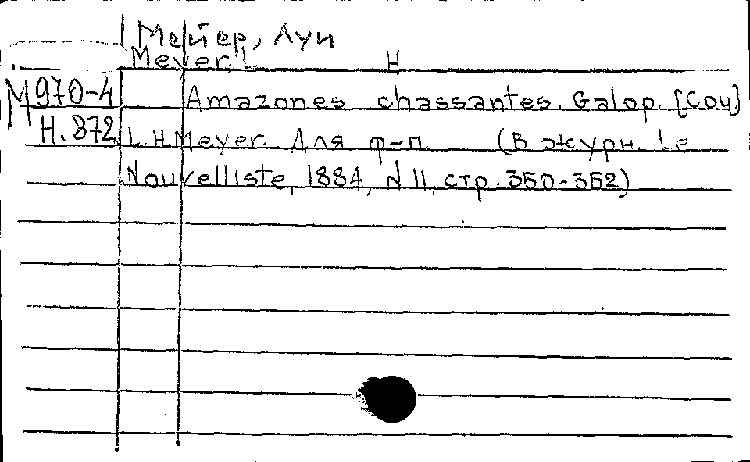 Мейер, Луи
Meyer, L H
М 970-4
Н. 872
Amazones chassantes. Galop. [Соч]
L.H. Meyer. Для ф-п. (В журн. Le
Nouvelliste, 1884, N 11, стр. 350-352)